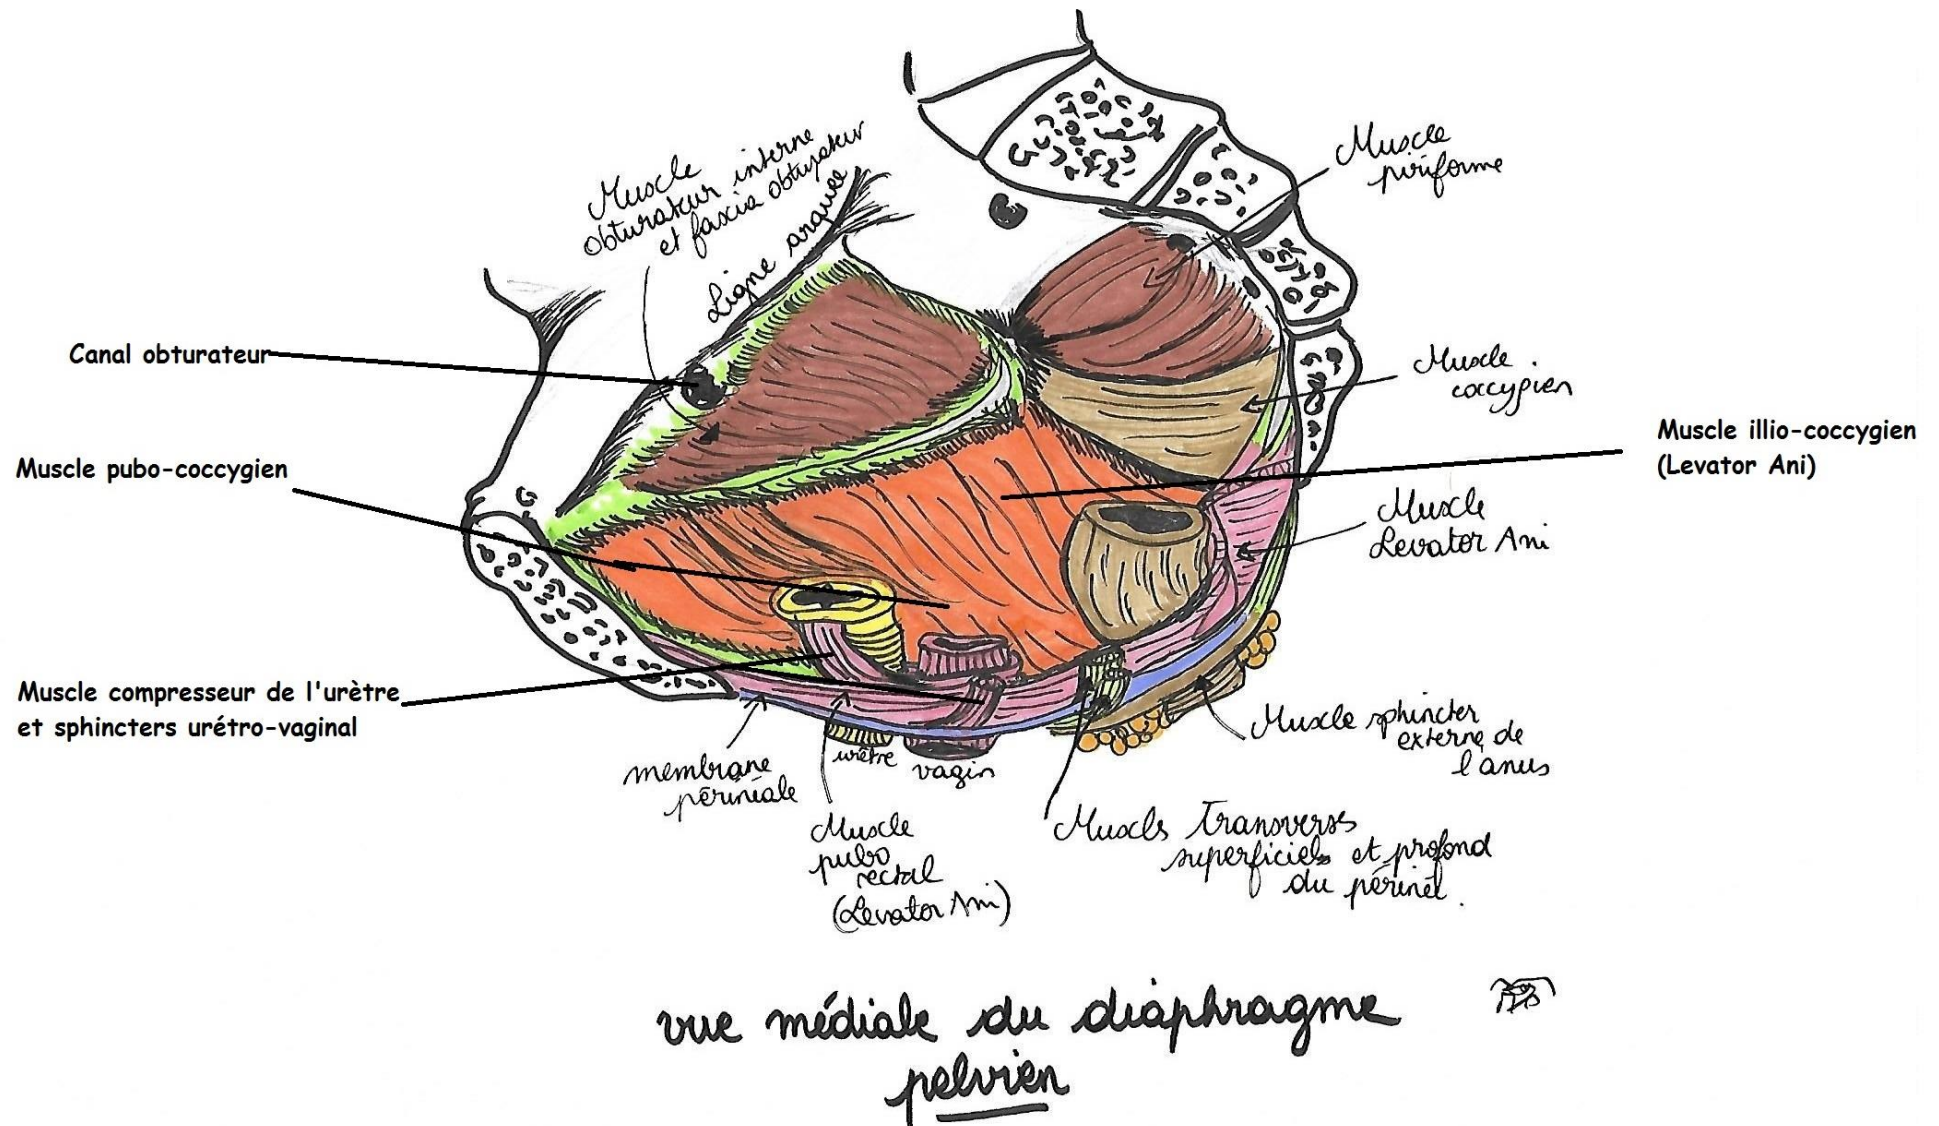 Muscle
obturateur interne
et fascia obturateur
Ligne arquée
Muscle
piriforme
Canal obturateur
Muscle
coccygien
Muscle illio-coccygien
(Levator Ani)
Muscle pubo-coccygien
Muscle
Levator Ani
Muscle compresseur de l'urètre
et sphincters urétro-vaginal
membrane
périnéale
urètre
vagin
Muscle sphincter
externe de
l'anus
Muscle
pubo
rectal
(Levator Ani)
Muscls Transverses
superficiels et profond
du périnél.
vue médiale du diaphragme
pelvien